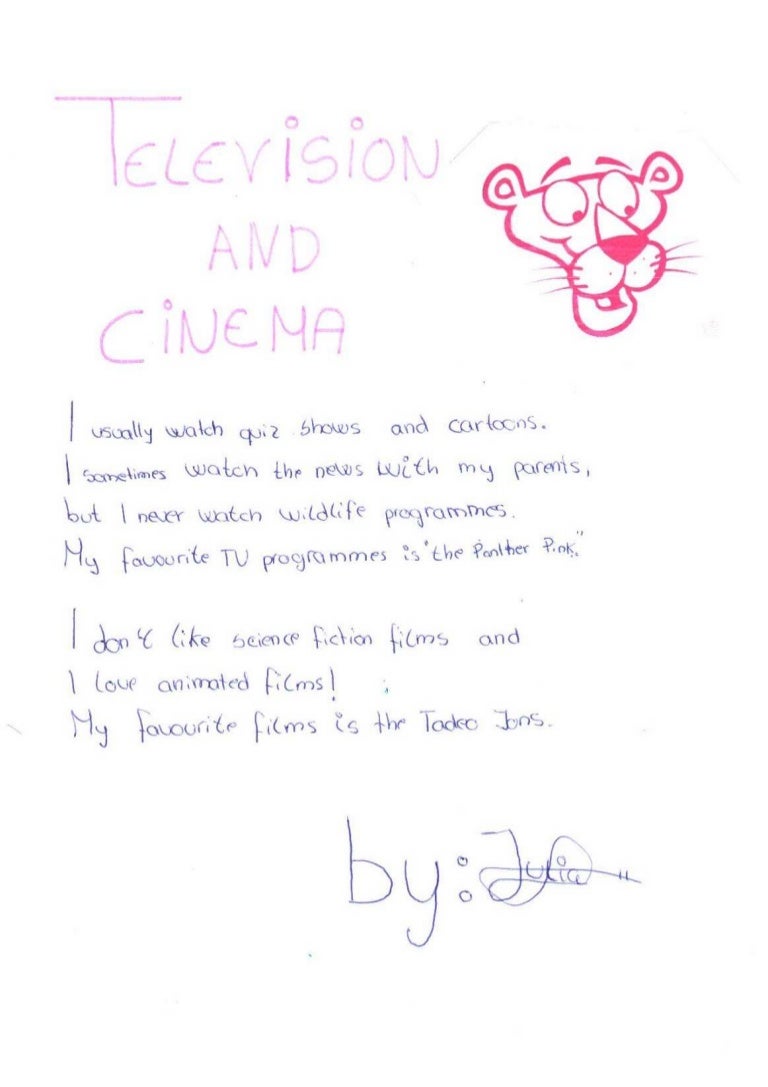 TELEVISION
AND
CINEMA
I usually watch quiz shows and cartoons.
I sometimes watch the news with my parents,
but I never watch wildlife programmes.
My favourite TV programmes is "the Panther Pink."
I don't like science fiction films and
I love animated films!
My favourite films is the Tadeo Jons.
by: Julia